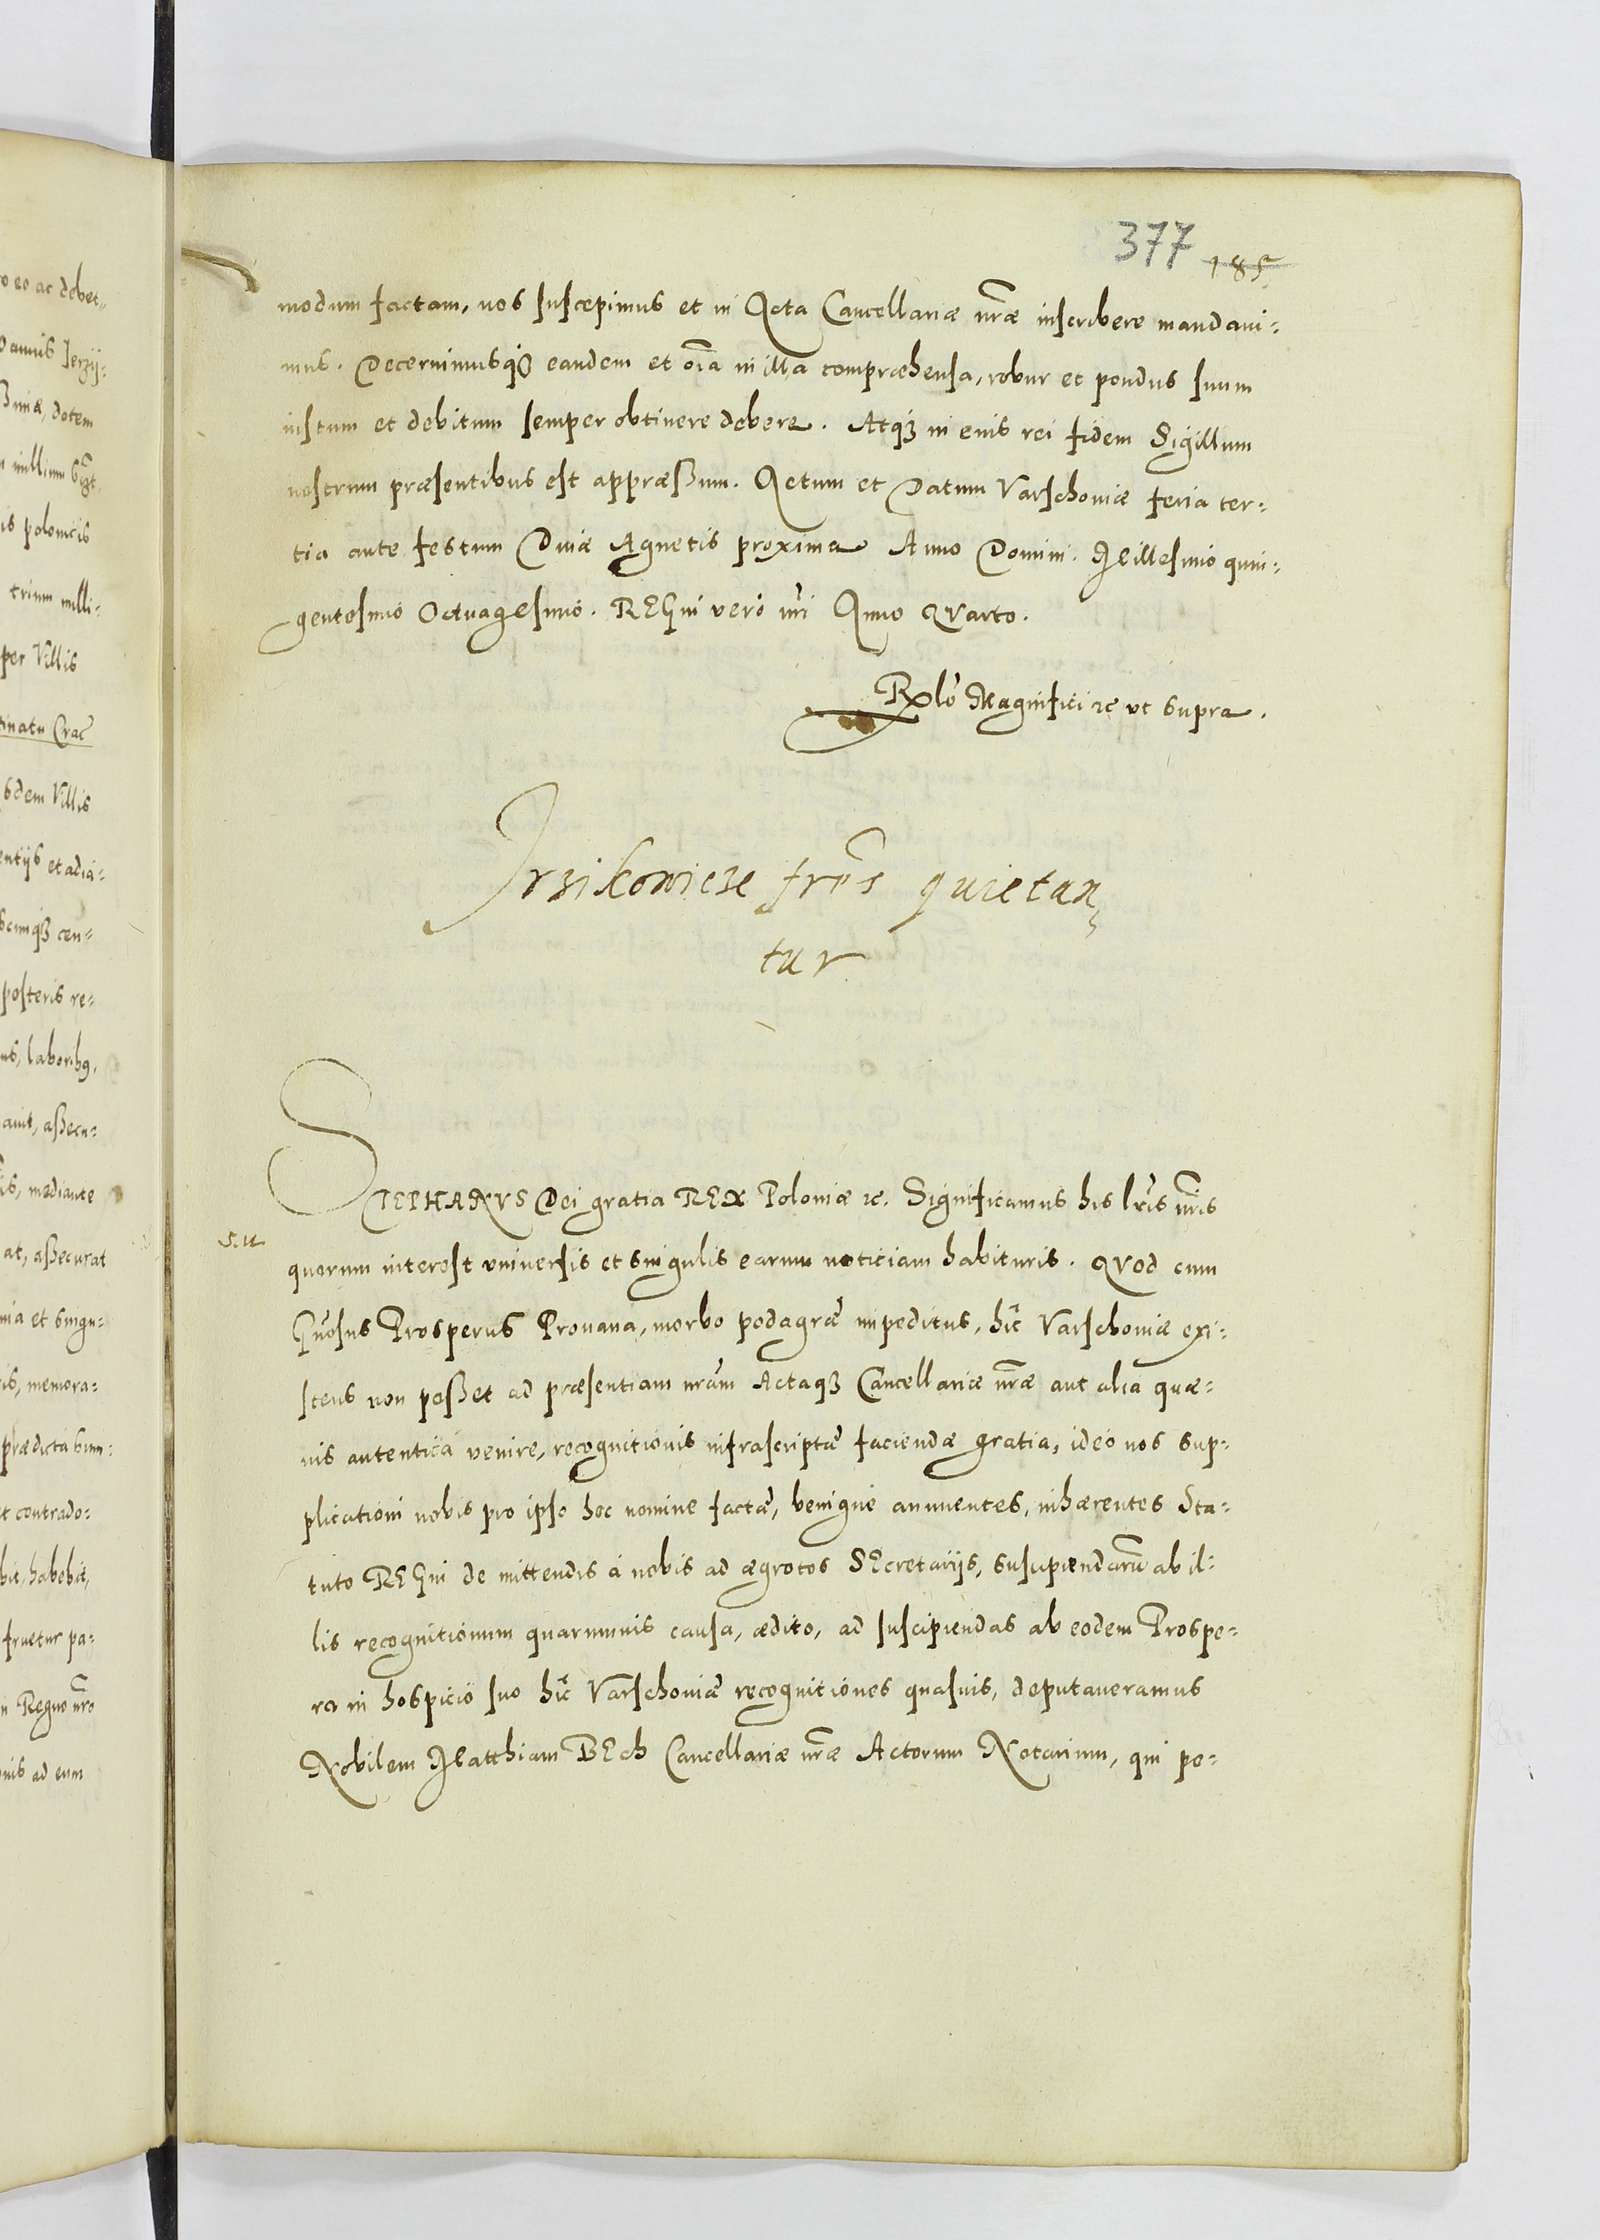 377 185
modum factam, nos suscepimus et in Acta Cancellariæ nr̃æ inscribere mandavi=
mus. Decernimusq₃ eandem et oĩa in illa compræhensa, robur et pondus suum
iustum et debitum semper obtinere debere. Atq₃ in euis rei fidem Sigillum
nostrum præsentibus est appræßum. Actum et Datum Varschoviæ feria ter=
tia ante festum Divæ Agnetis proxima Anno Domini. Millesimo quin=
gentesimo Octuagesimo. REGni verò nr̃i Anno QVarto.
Rlõ Magnifici ꝛc ut supra.
Irzikowicze fr̃es quietan
tur
STEPHANVS Dei gratia REX Poloniæ ꝛc. Significamus his lr̃is nr̃is
quorum interest universis et singulis earum noticiam habituris. QVod cum
Gñosus Prosperus Provana, morbo podagræ impeditus, hîc Varschoviæ exi=
stens non poßet ad præsentiam nr̃am Actaq₃ Cancellariæ nr̃æ aut alia quæ=
vis autentica venire, recognitionis infrascriptæ faciendæ gratia, ideò nos sup=
plicationi nobis pro ipso hoc nomine factæ, benignè annuentes, inhærentes Sta=
tuto REGni de mittendis à nobis ad ægrotos SEcretarijs, suscipiendarũ ab il=
lis recognitionum quarumvis causa, ædito, ad suscipiendas ab eodem Prospe=
ro in hospicio suo hîc Varschoviæ recognitiones quasvis, deputaveramus
Nobilem Matthiam BEch Cancellariæ nr̃æ Actorum Notarium, qui po=
ro eo ac debet=
dotem
is polonicis
trium milli=
per Villis
tinatu Crac̃
sdem Villis
entijs et adia=
posteris re=
laboribꝰ,
avit, aßecu=
mediante
at, aßecurat
nia et singu=
memora=
prædicta sum=
et contrado=
habebit,
fruetur pa=
n Regno nr̃o
vis ad eum